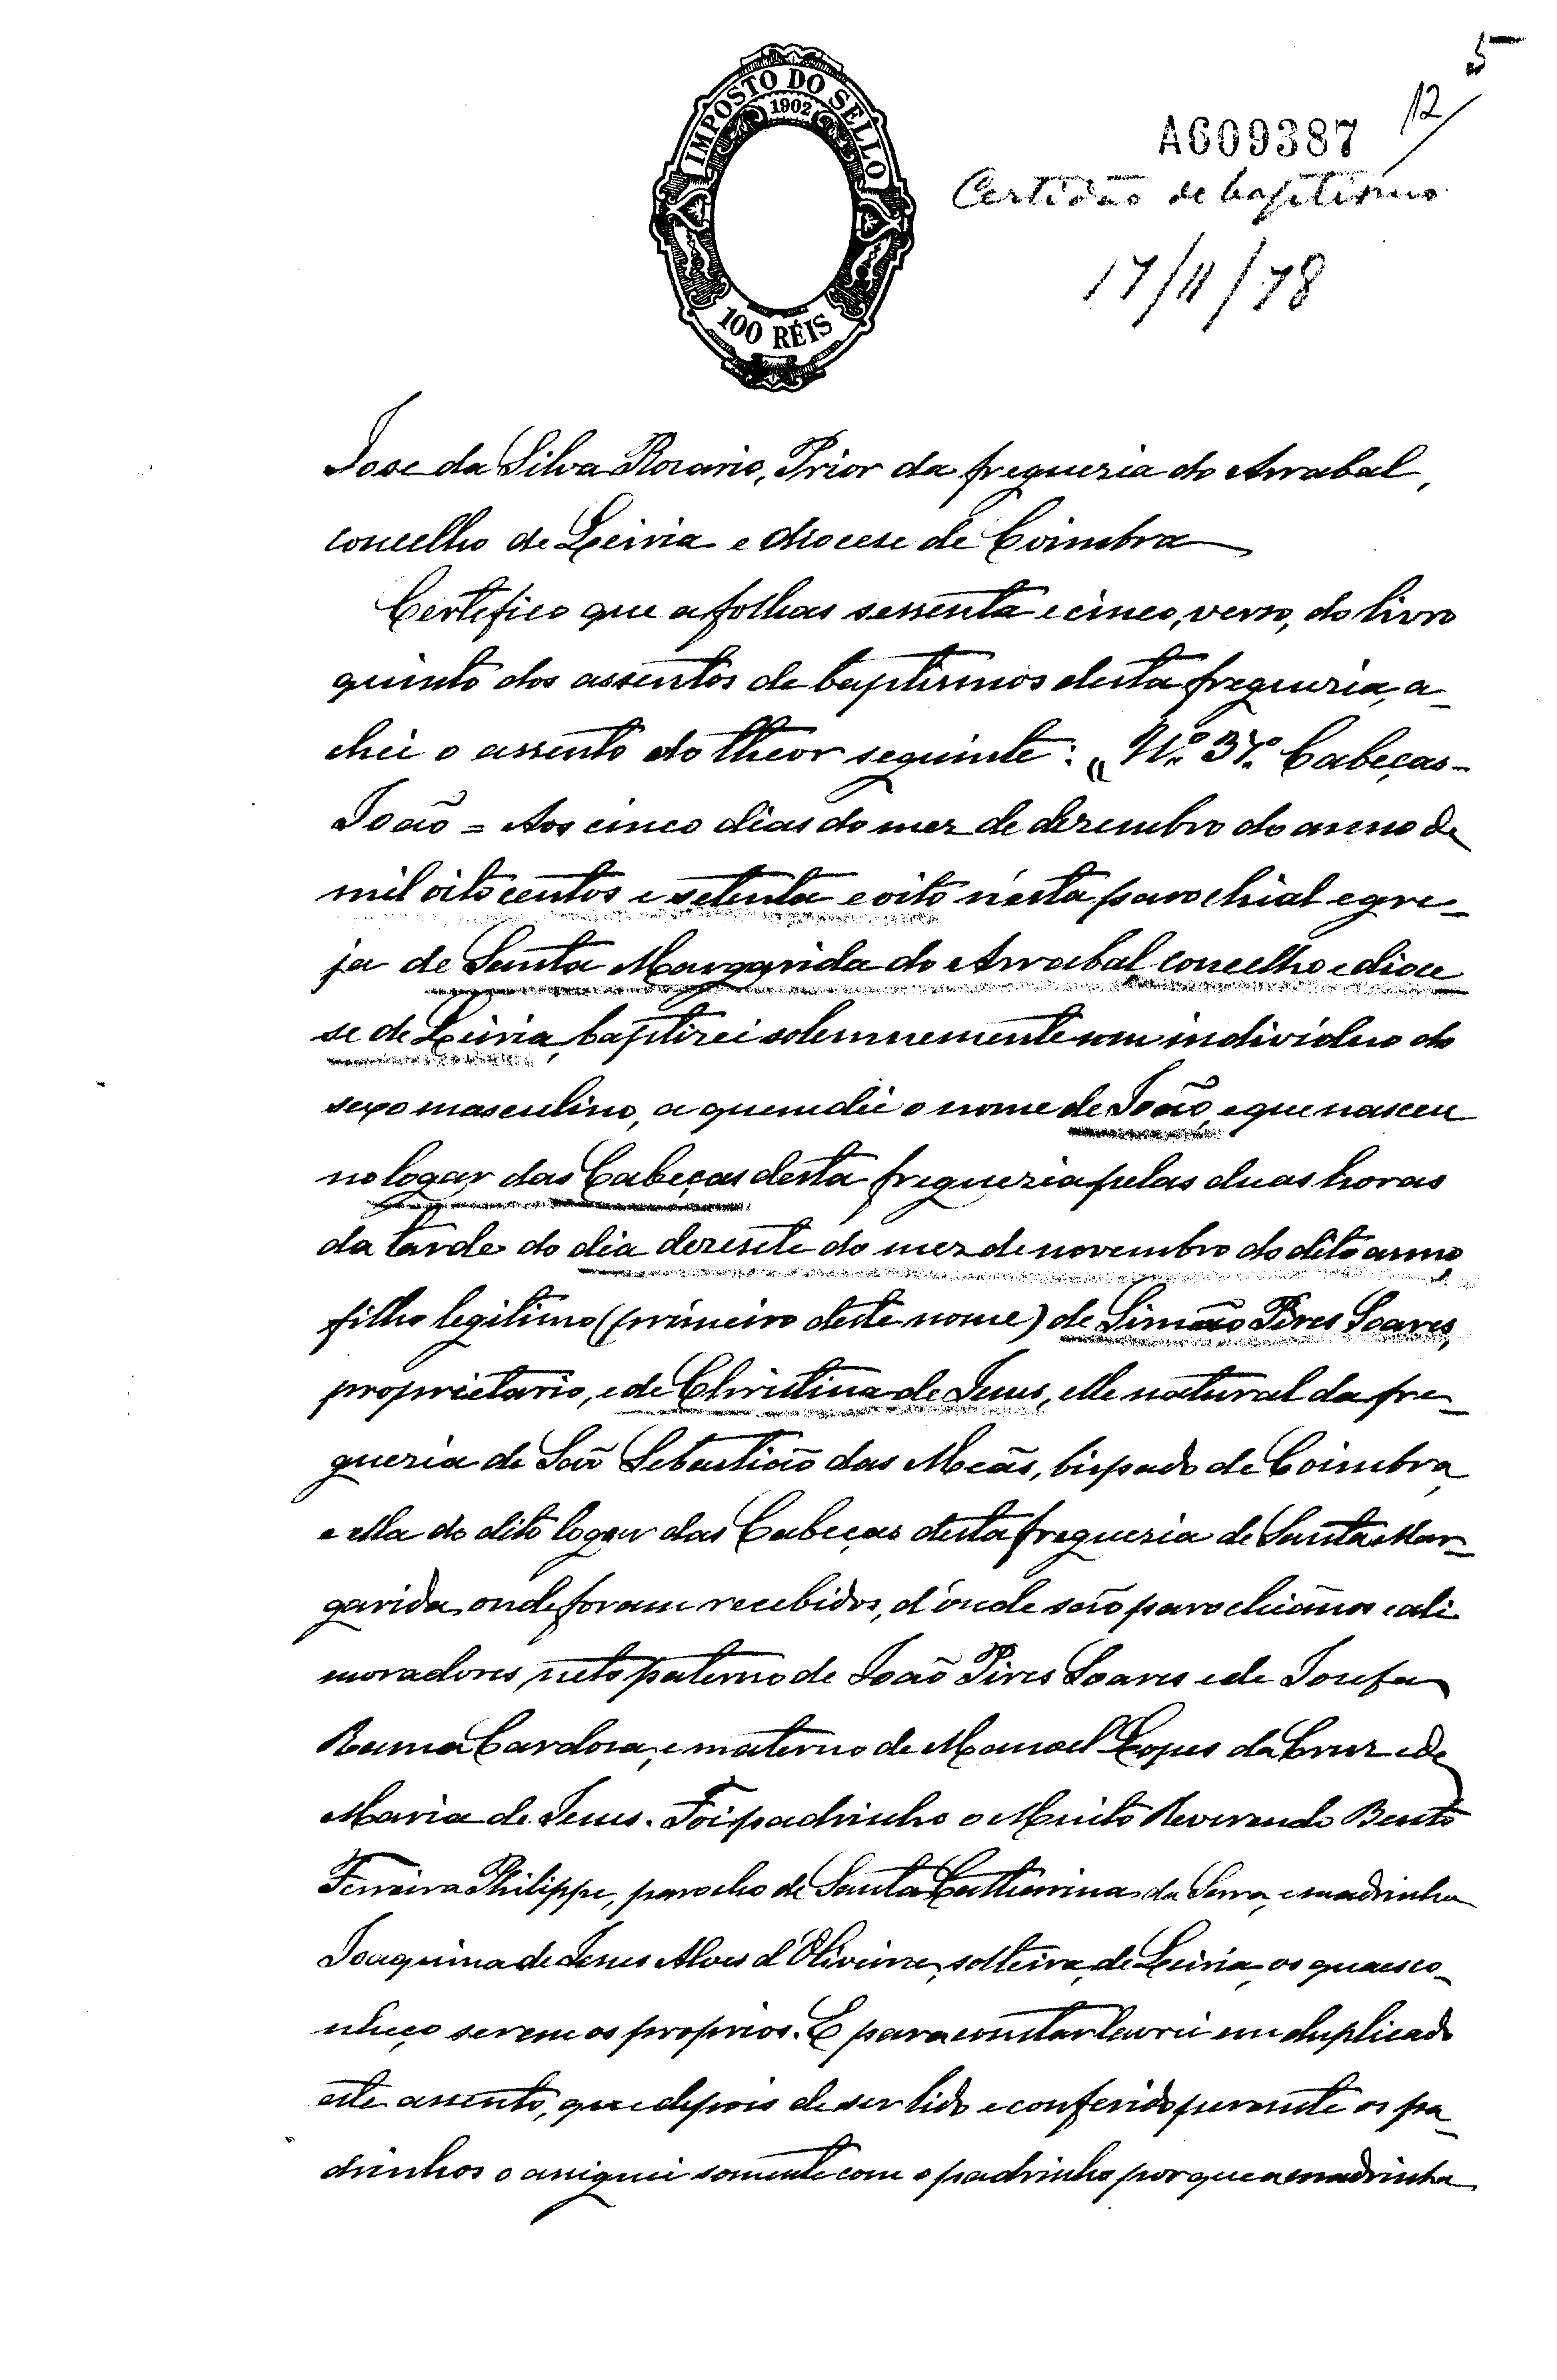 5
12
IMPOSTO DO SELLO
1902
100 RÉIS
A609387
Certidão de baptismo
17/11/78
Jose da Silva Rosario, Prior da freguezia do Arrabal,
concelho de Leiria e diocese de Coimbra
Certefico que a folhas sessenta e cinco, verso, do livro
quinto dos assentos de baptismos desta freguezia, a-
chei o assento do theor seguinte: "Nº. 37º. Cabeças-
João = Aos cinco dias do mez de dezembro do anno de
mil oito centos e setenta e oito nésta parochial egre-
ja de Santa Margarida do Arrabal, concelho e dioce
se de Leiria, baptizei solemnemente um individuo do
sexo masculino, a quem dei o nome de João, e que nasceu
no logar das Cabeças desta freguezia pelas duas horas
da tarde do dia dezesete do mez de novembro do dito anno,
filho legitimo (primeiro deste nome) de Simão Pires Soares,
proprietario, e de Christina de Jesus, elle natural da fre-
guezia de São Sebastião das Meãs, bispado de Coimbra,
e ella do dito logar das Cabeças desta freguezia de Santa Mar-
garida, onde foram recebidos, d'onde são parochianos e ali
moradores, neto paterno de João Pires Soares e de Josefa
Cardosa, e materno de Manoel Lopes da Cruz e de
Maria de Jesus. Foi padrinho o Muito Reverendo Bento
Ferreira Philippe, parocho de Santa Catharina da Serra, e madrinha
Joaquina de Jesus Alves d'Oliveira, solteira, de Leiria, os quaes co-
nheço serem os proprios. E para constar lavrei em duplicado
este assento, que depois de ser lido e conferido perante os pa-
drinhos o assignei somente com o padrinho por que a madrinha